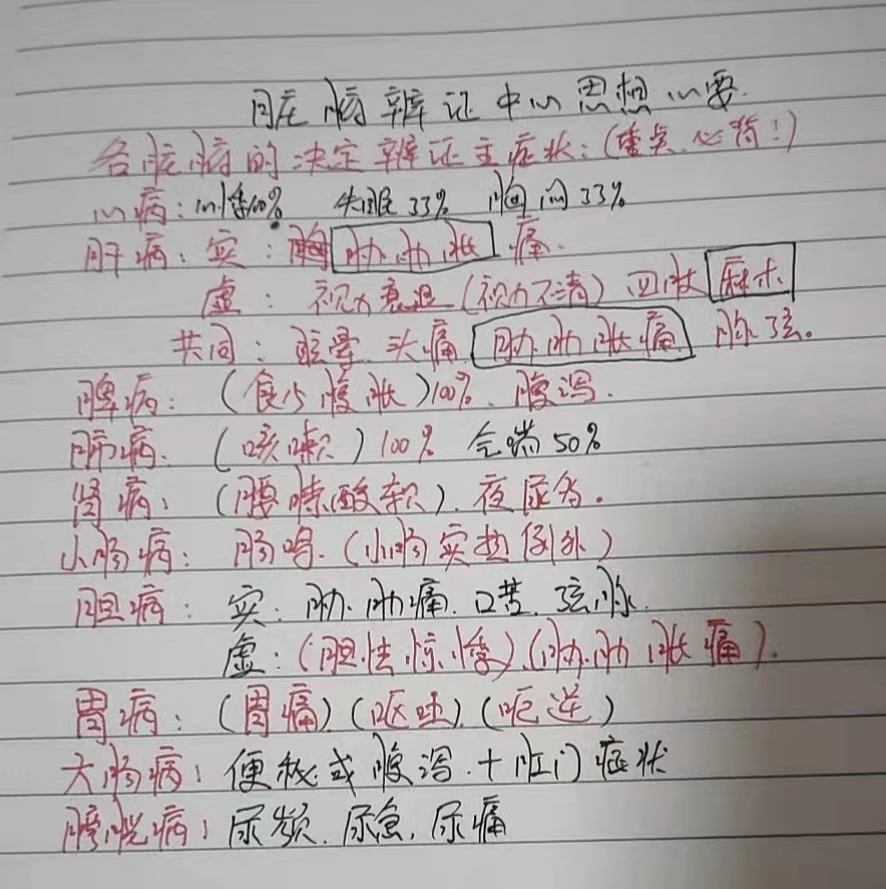 脏腑辨证中心思想心要.
各脏腑的决定辨证主症状:(重点.必背!)
心病:心悸100% 失眠33% 胸闷33%
肝病:实:胁肋胀痛.
虚:视力衰退(视力不清)四肢麻木
共同:眩晕.头痛.胁肋胀痛.脉弦。
脾病:(食少腹胀)100%.腹泻.
肺病.(咳嗽)100% 气喘50%
肾病:(腰膝酸软).夜尿多.
小肠病:肠鸣.(小肠实热例外)
胆病:实:胁.肋痛.口苦.弦脉.
虚:(胆怯惊悸).(胁.肋胀痛).
胃病:(胃痛)(呕吐).(呃逆)
大肠病:便秘或腹泻.+肛门症状
膀胱病:尿频.尿急.尿痛